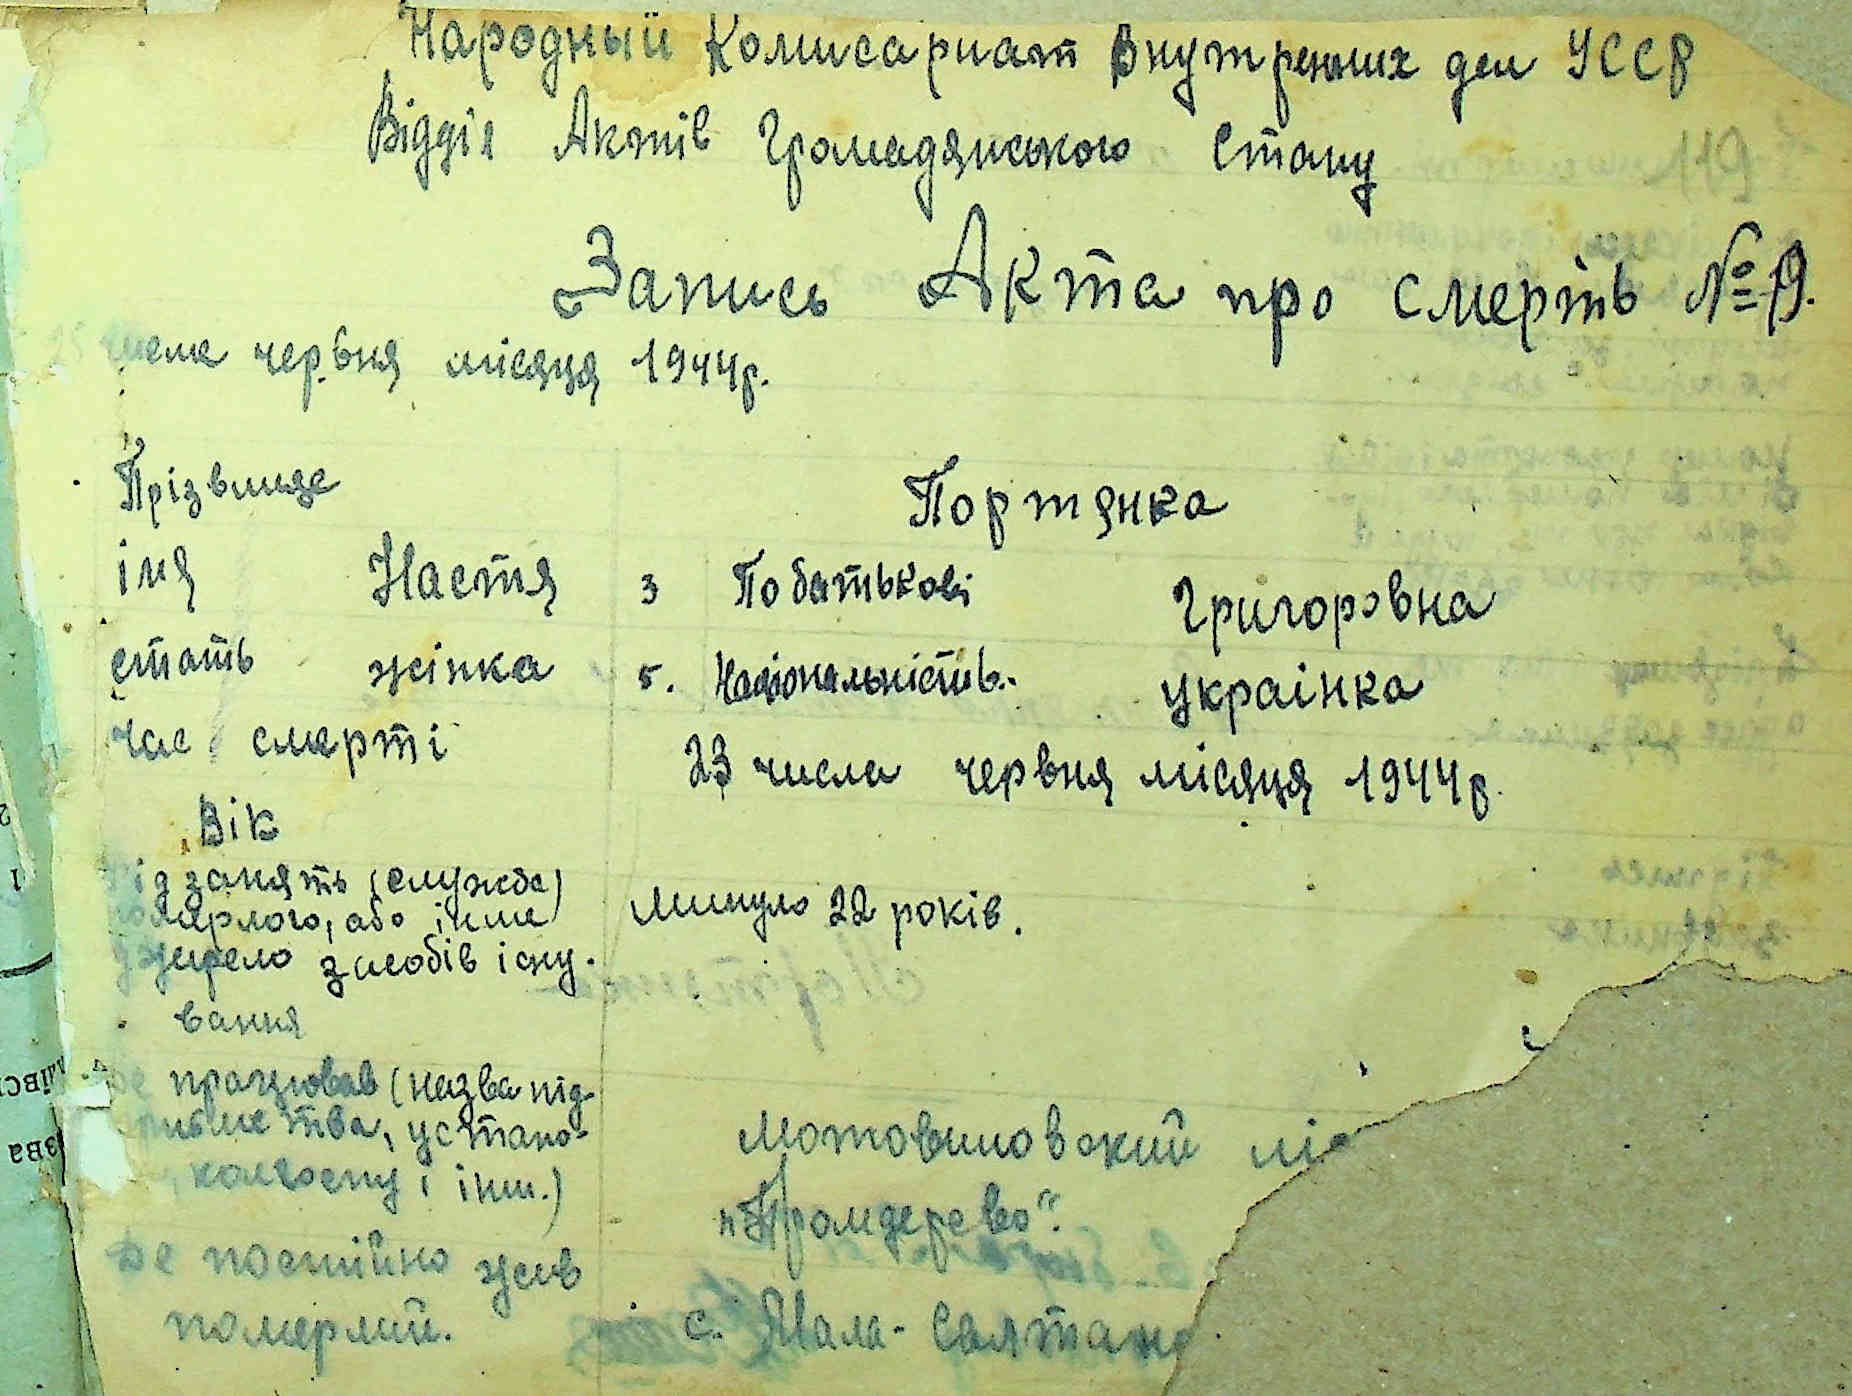 Народный Комисариат Внутренних дел УССР
Відділ Актів Громадянського Стану
Запись Акта про смерть № 19.
25 числа червня місяця 1944р.
Прізвище Портянка
імя Настя 3 Побатькові Григоровна
стать жінка 5. Національність. украінка
час смерті 23 числа червня місяця 1944р.
Вік
Рід занять (служба)
померлого, або інше минуло 22 років.
джерело засобів існу-
вання
Де працював (назва під-
приємства, устано- Мотовиловский
колгоспу і інш.)
"Промдерево".
Де постійно жив
померлий. с. Мала-Солтан